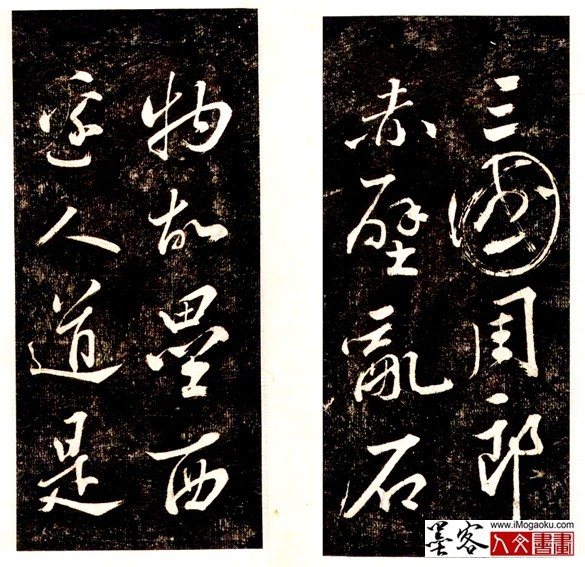 物故壘西
邊人道是
三國周郎
赤壁亂石
墨客
www.iMogaoku.com
人文書畫